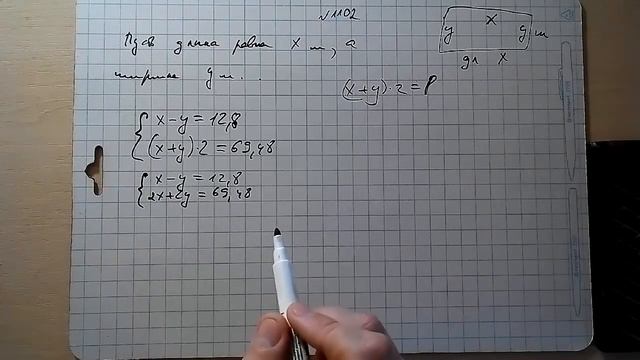 №1102
Пусть длина равна x м, а
ширина y м.
x
y y м
дл x
(x+y)·2=P
x-y=12,8
(x+y)·2=69,48
x-y=12,8
2x+2y=69,48